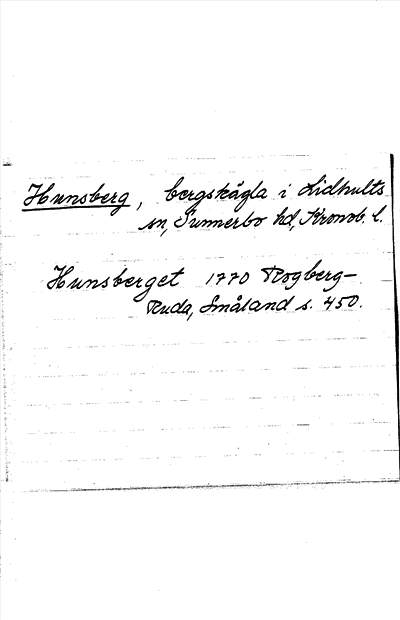 Hunsberg, bergskägla i Lidhults
sn, Sunnerbo hd, Kronob. l.
Hunsberget 1770 Rogberg-
Ruda, Småland s. 450.